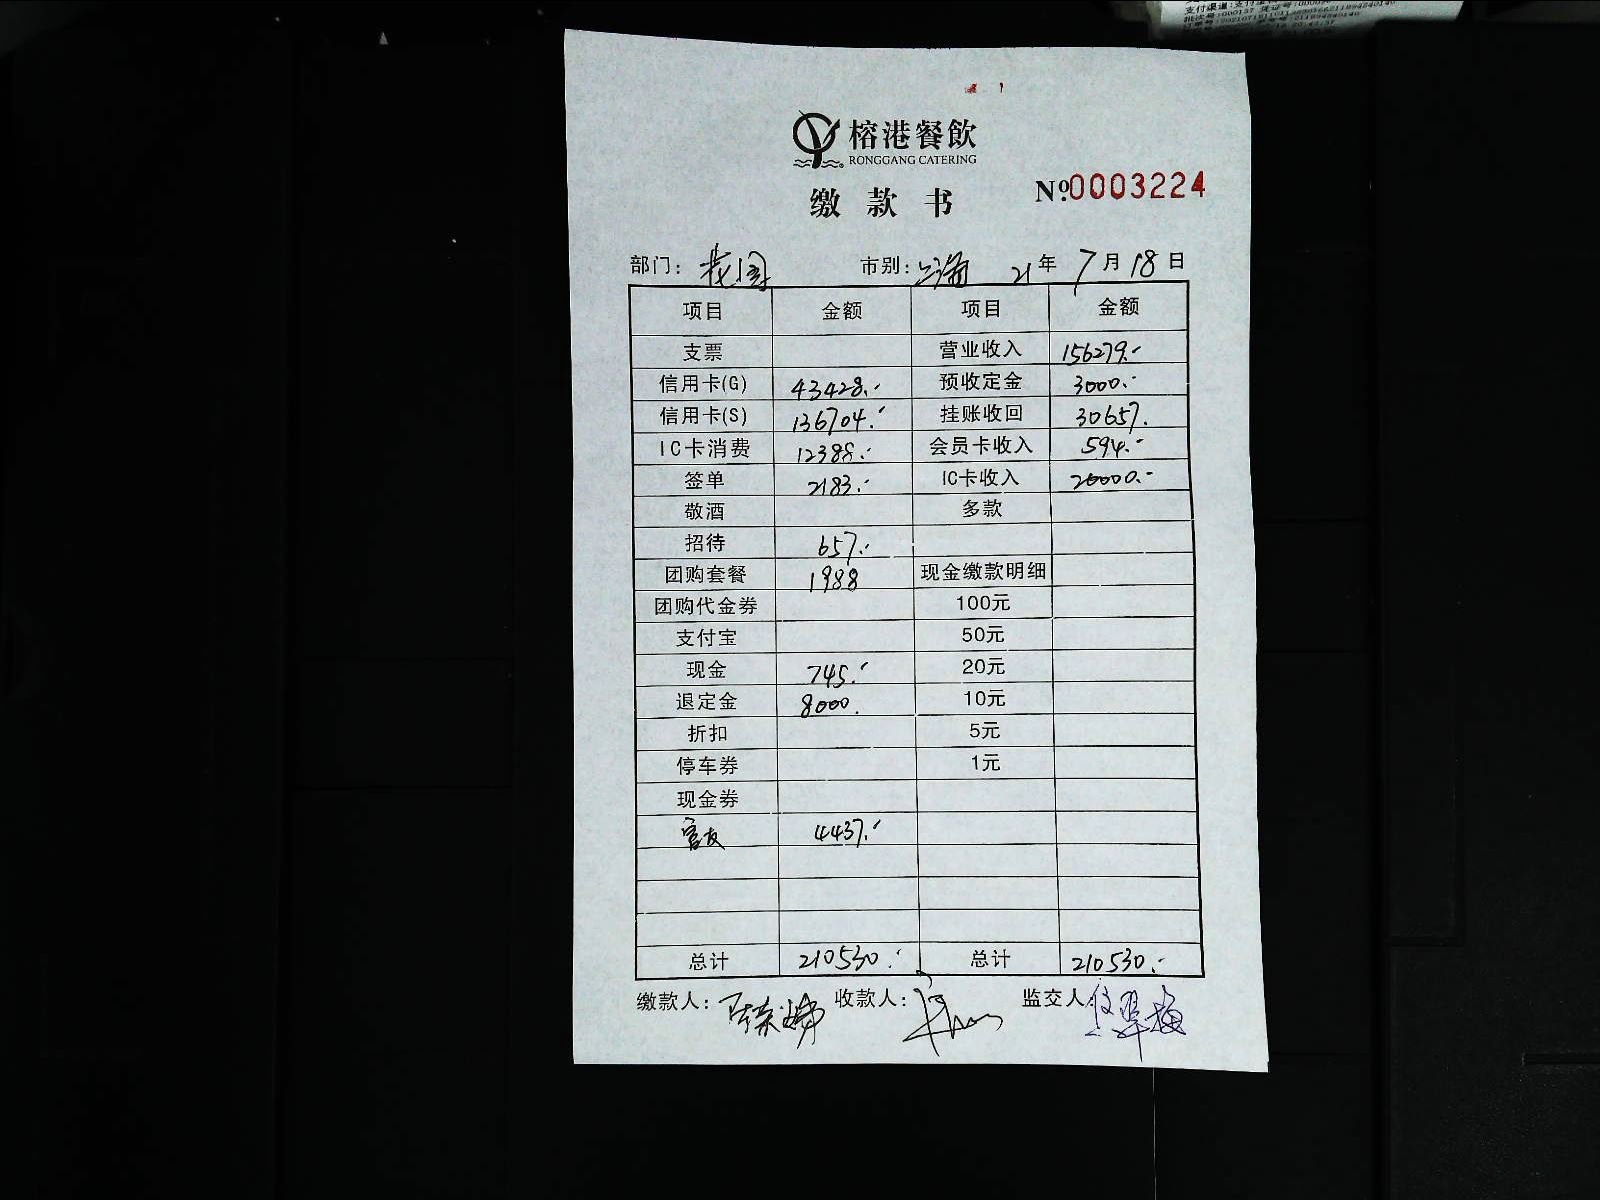 榕港餐飲
RONGGANG CATERING
缴款书
№.0003224
部门：花园 市别：上海 21年7月18日
项目 金额 项目 金额
支票 营业收入 156279.-
信用卡(G) 43428.- 预收定金 3000.-
信用卡(S) 136704.- 挂账收回 30657.
IC卡消费 12388.- 会员卡收入 594.-
签单 2183.- IC卡收入 20000.-
敬酒 多款
招待 657.-
团购套餐 1988 现金缴款明细
团购代金券 100元
支付宝 50元
现金 745.- 20元
退定金 8000. 10元
折扣 5元
停车券 1元
现金券
4437.-
总计 210530.- 总计 210530.-
缴款人： 收款人： 监交人